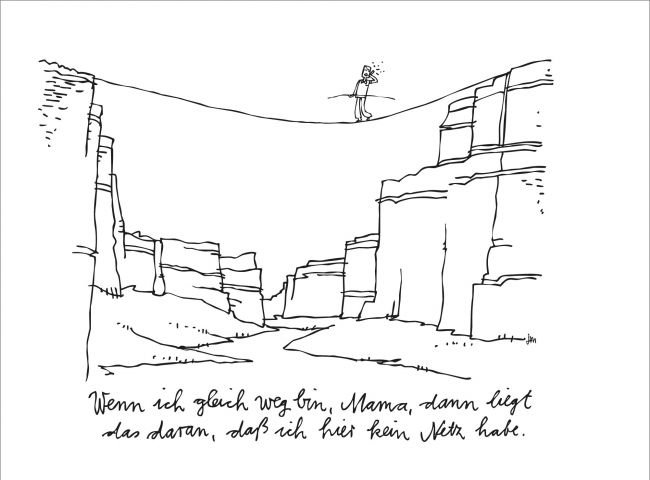 Wenn ich gleich weg bin, Mama, dann liegt
das daran, daß ich hier kein Netz habe.